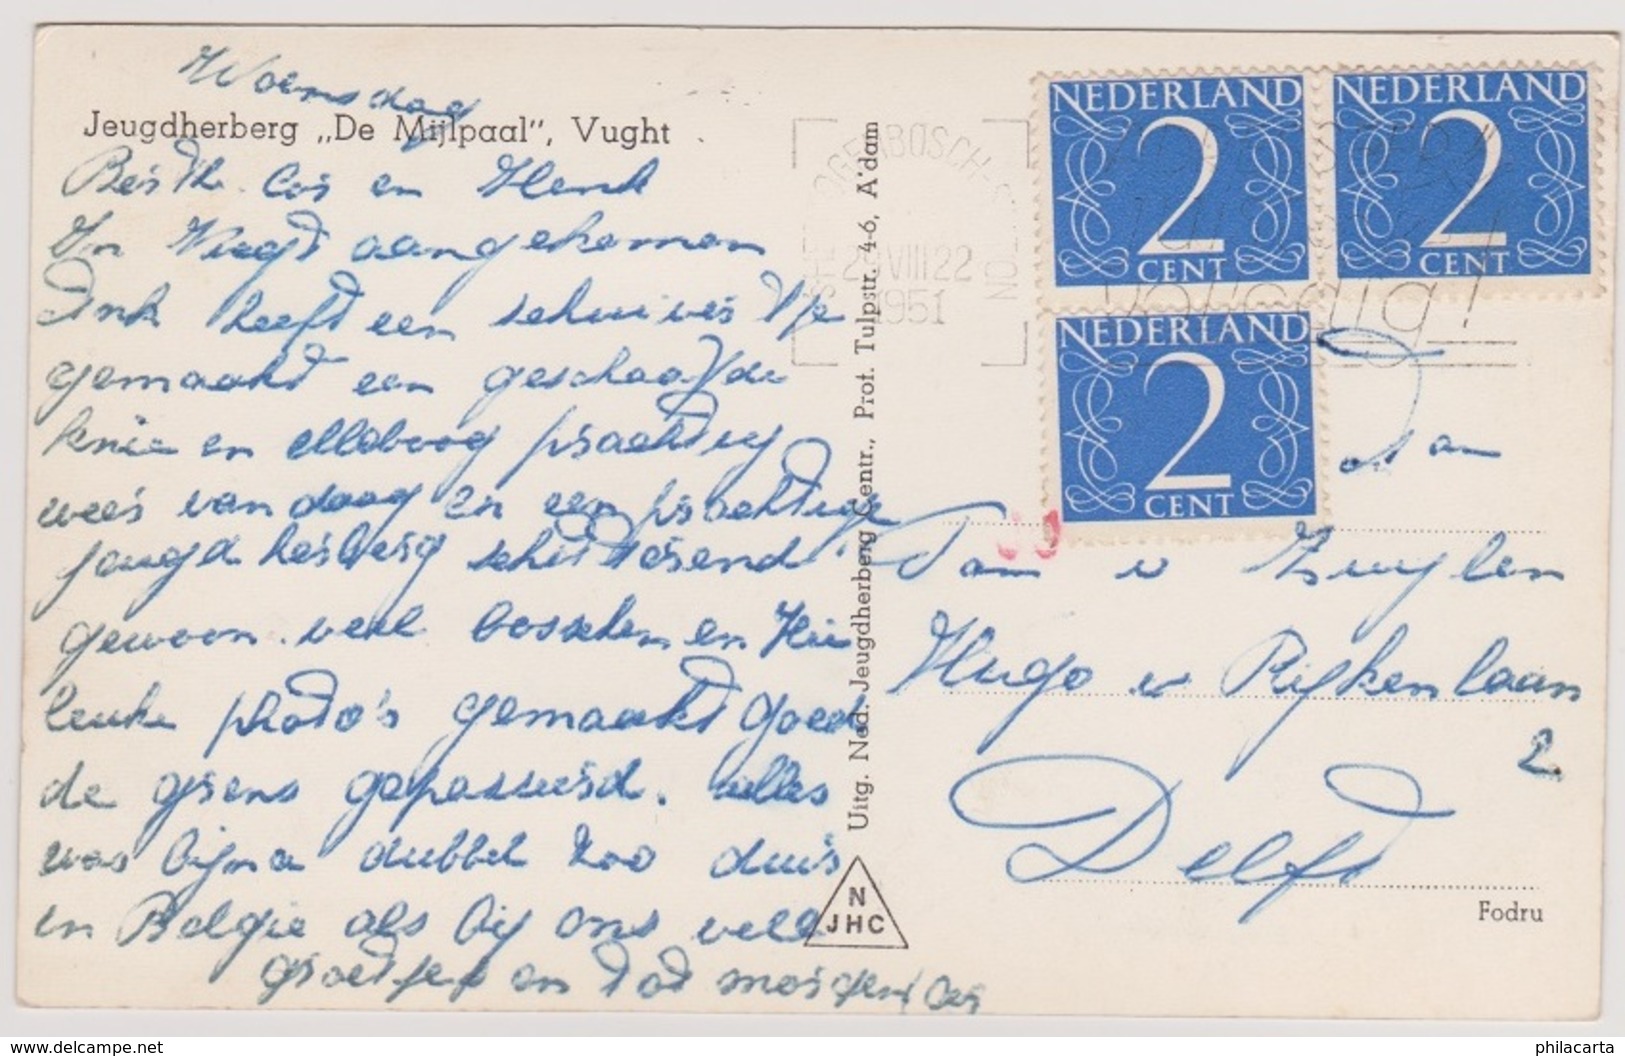 Woensdag
Jeugdherberg „De Mijlpaal”, Vught
Cor en Henk
In Vugt aangekomen
heeft een schuiver
gemaakt een geschaafde
knie en elleboog prachtig
weer vandaag en een prachtige
jeugdherberg schitterend
gewoon. veel bosschen en
leuke photo's gemaakt goed
de grens gepasseerd. alles
was bijna dubbel zoo duur
in België als bij ons veel
groetjes en tot morgen Cor
Uitg. Ned. Jeugdherberg Centr., Prof. Tulpstr. 4-6, A'dam
N
JHC
OGENBOSCH
VIII 22
1951
NO
volledig!
NEDERLAND
2
CENT
NEDERLAND
2
CENT
NEDERLAND
2
CENT
Fam v Zuylen
Hugo v Rijkenlaan
2
Delft
Fodru
https://www.delcampe.net
philacarta